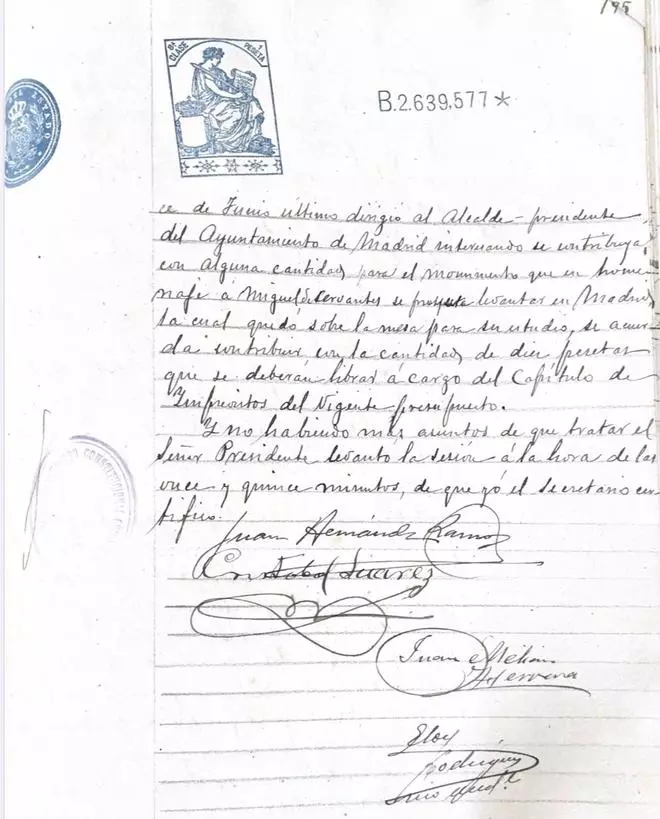 195
8ª CLASE
1 PESETA
B.2.639,577*
ESTADO
CONSTITUCIONAL
ce de Junio último dirigió al Alcalde-presidente
del Ayuntamiento de Madrid interesando se contribuya
con alguna cantidad para el monumento que en home
naje á Miguel de Cervantes se proyecta levantar en Madrid,
la cual quedó sobre la mesa para su estudio, se acuer
da contribuir con la cantidad de diez pesetas
que se deberán librar á cargo del Capítulo de
Imprevistos del Vigente presupuesto.
Y no habiendo más asuntos de que tratar el
Señor Presidente levanto la sesión á la hora de las
once y quince minutos, de que yó el Secretario cer
tifico.
Juan Hernández Ramos
Cristobal Suarez
Juan Melian
Herrera
Eloy
Rodriguez